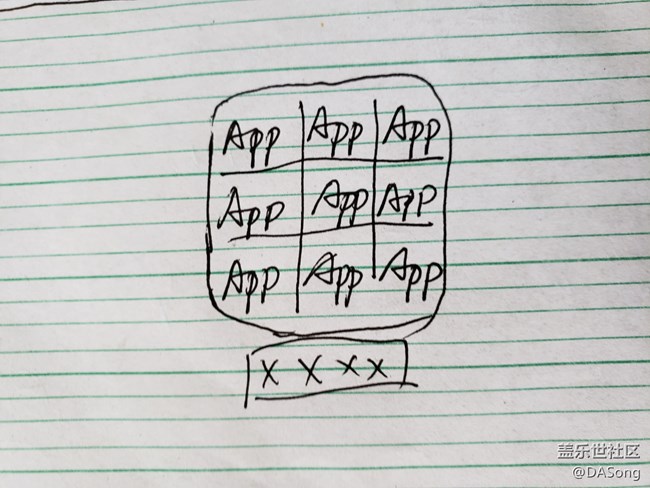 App App App
App App App
App App App
X X X X
盖乐世社区
@DASong